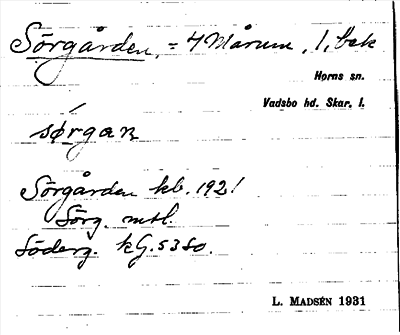 Sörgården, = 4 Mårum, 1, bek
Horns sn.
Vadsbo hd. Skar. l.
sǿrgaɴ
Sörgården kb. 1921
Sörg. mtl.
Söderg. kG. 53 So.
L. MADSÉN 1931